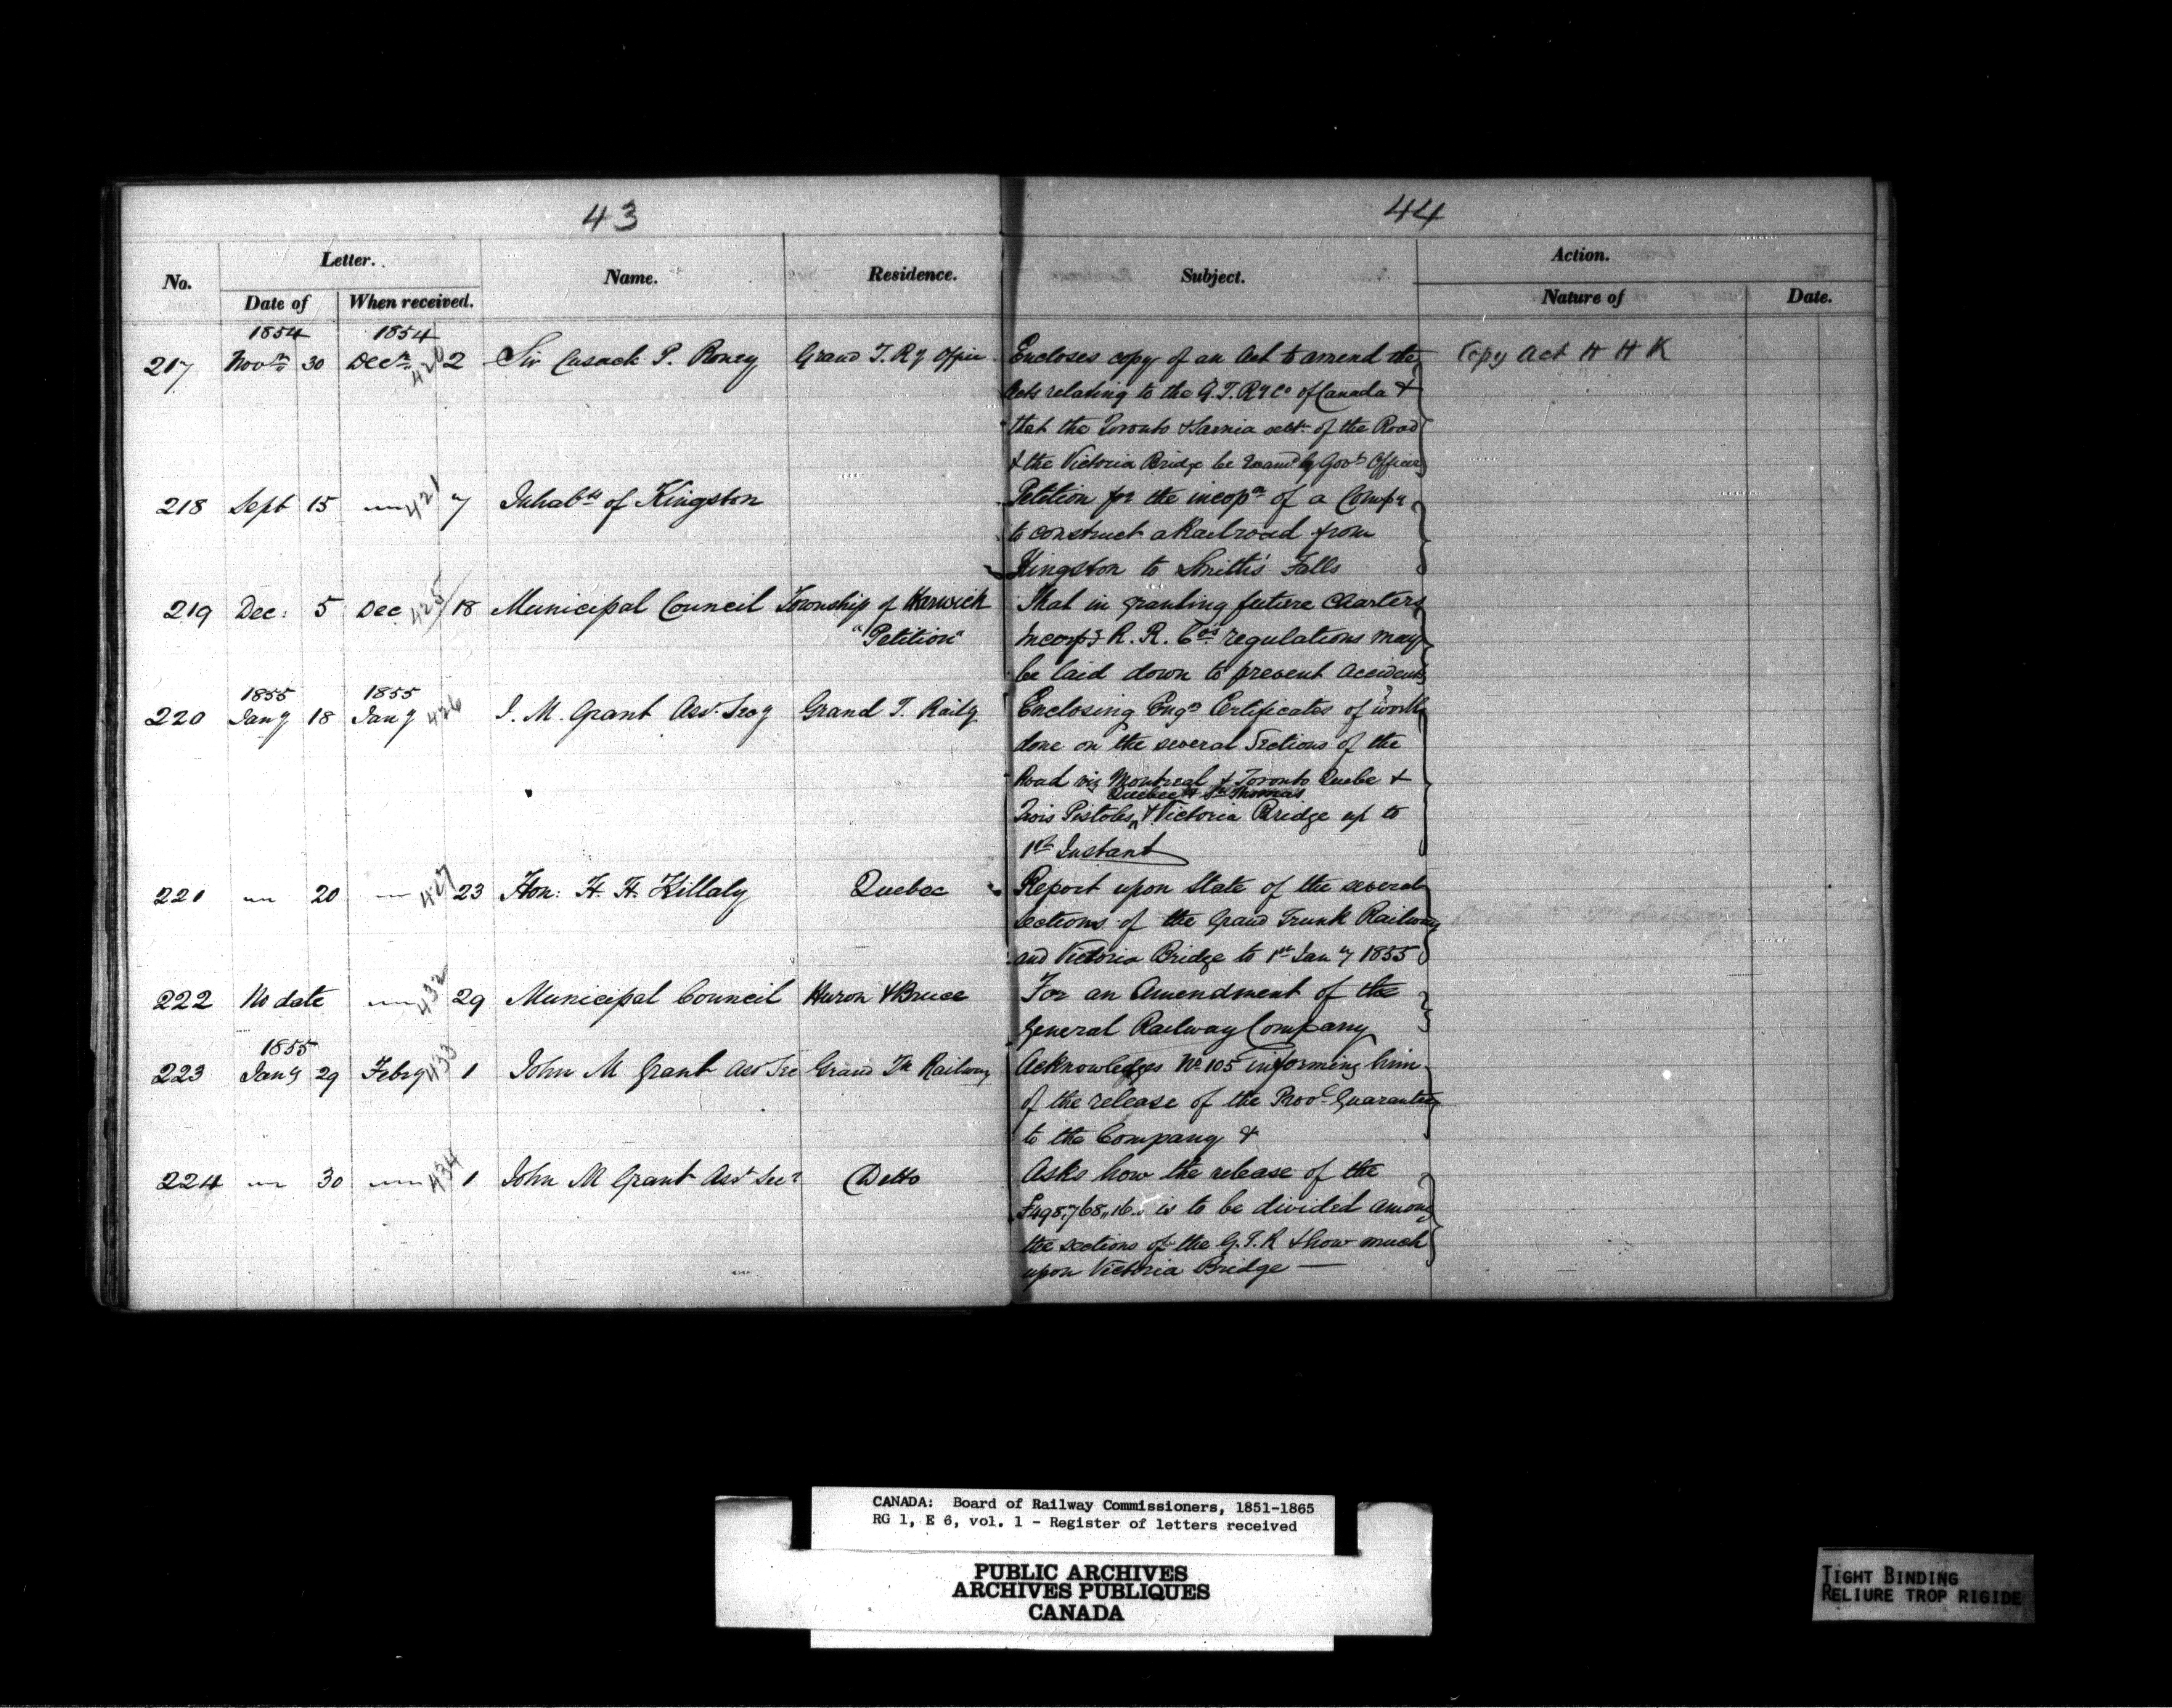 43
44
No.
Letter.
Date of
When received.
Name.
Residence.
Subject.
Action.
Nature of
Date.
1854 1854
217 Novr 30 Decr 420 2 Sir Cusack P. Roney Grand T. Ry Office Encloses copy of an Act to amend the Copy Act H H K
Acts relating to the G. T. Ry Co of Canada &
that the Toronto & Sarnia sectn of the Road
& the Victoria Bridge be Examd by Govt Officer
218 Sept 15 " 421 7 Inhabts of Kingston Petition for the incopn of a Compy
to construct a Railroad from
Kingston to Smith's Falls
219 Dec: 5 Dec 425 18 Municipal Council Township of Harwich That in granting future Charters
"Petition" incorpg R. R. Cos regulations may
be laid down to prevent accidents
1855 1855
220 Jany 18 Jany 426 J. M. Grant Asst. Secy Grand T. Raily Enclosing Engrs Certificates of work
done on the several Sections of the
Road viz Montreal & Toronto Quebc &
Quebec & St Thomas
Trois Pistoles & Victoria Bridge up to
1st Instant
221 " 20 " 427 23 Hon: H. H. Killaly Quebec Report upon State of the several
sections of the Grand Trunk Railway
and Victoria Bridge to 1st Jany 1855
222 No date " 432 29 Municipal Council Huron & Bruce For an Amendment of the
General Railway Company
1855
223 Jany 29 Febry 433 1 John M Grant Ast Sec Grand Tk Railway Acknowledges No 105 informing him
of the release of the Provl Guarantee
to the Company &
224 " 30 " 434 1 John M Grant Asst Secy Ditto Asks how the release of the
£498,768,,16 is to be divided among
the sections of the G. T. R & how much
upon Victoria Bridge —
CANADA: Board of Railway Commissioners, 1851-1865
RG 1, E 6, vol. 1 - Register of letters received
PUBLIC ARCHIVES
ARCHIVES PUBLIQUES
CANADA
TIGHT BINDING
RELIURE TROP RIGIDE